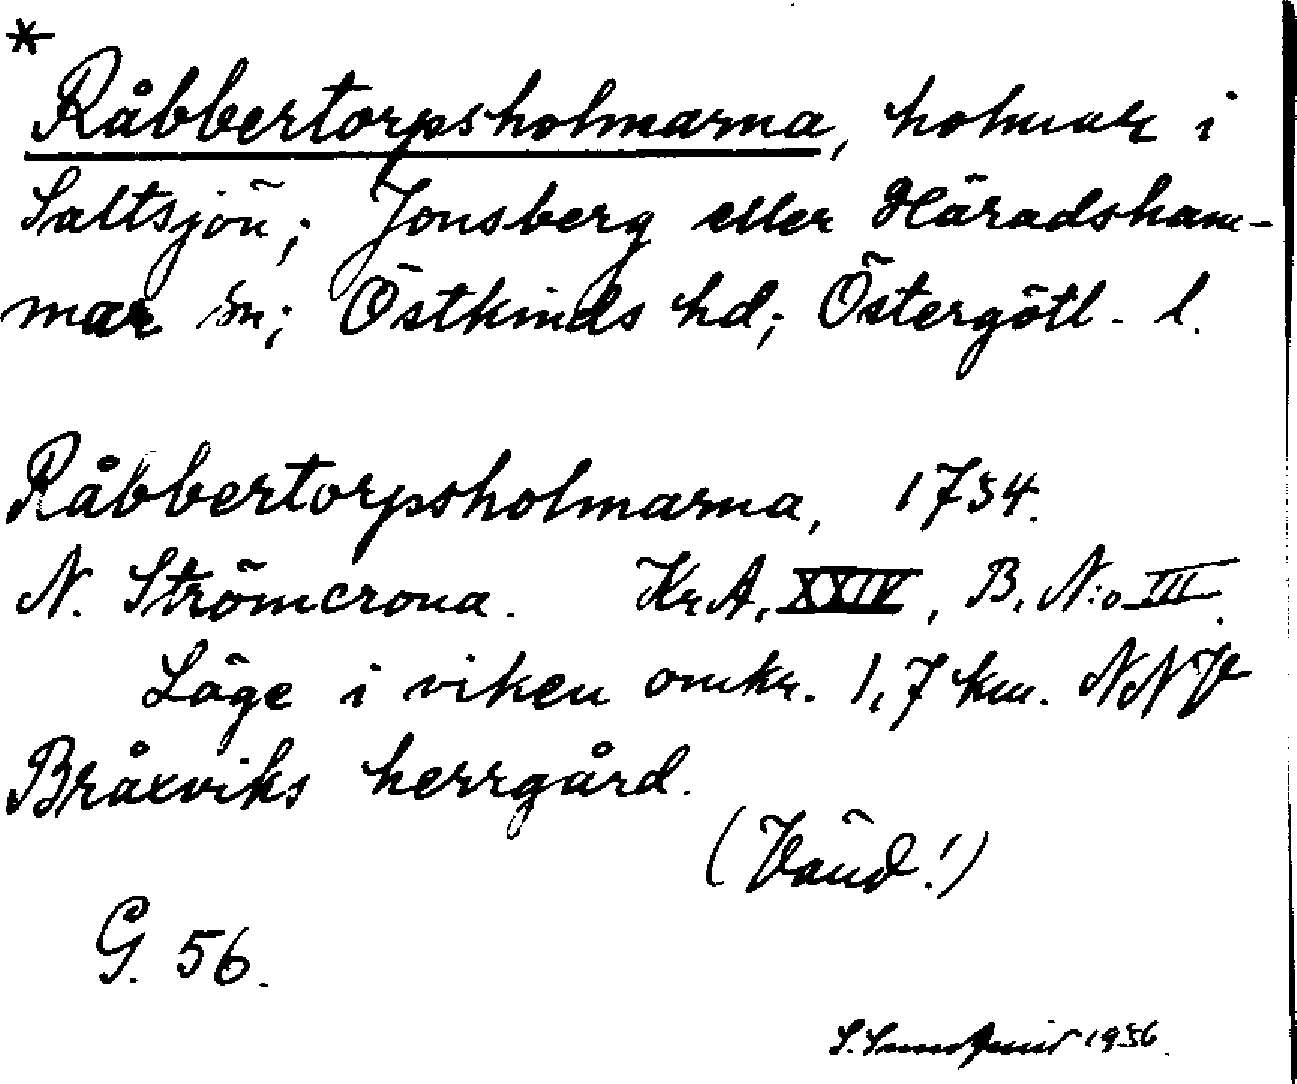 *
Råbbertorpsholmarna, holmar i
Saltsjön; Jonsberg eller Häradsham-
mar sn; Östkinds hd; Östergötl. l.
Råbbertorpsholmarna, 1734.
N. Strömcrona. Kr.A, XXIV, B, N:o III.
Läge i viken omkr. 1,7 km. NNV
Bråxviks herrgård.
(Vänd!)
G. 56.
S. 1956.